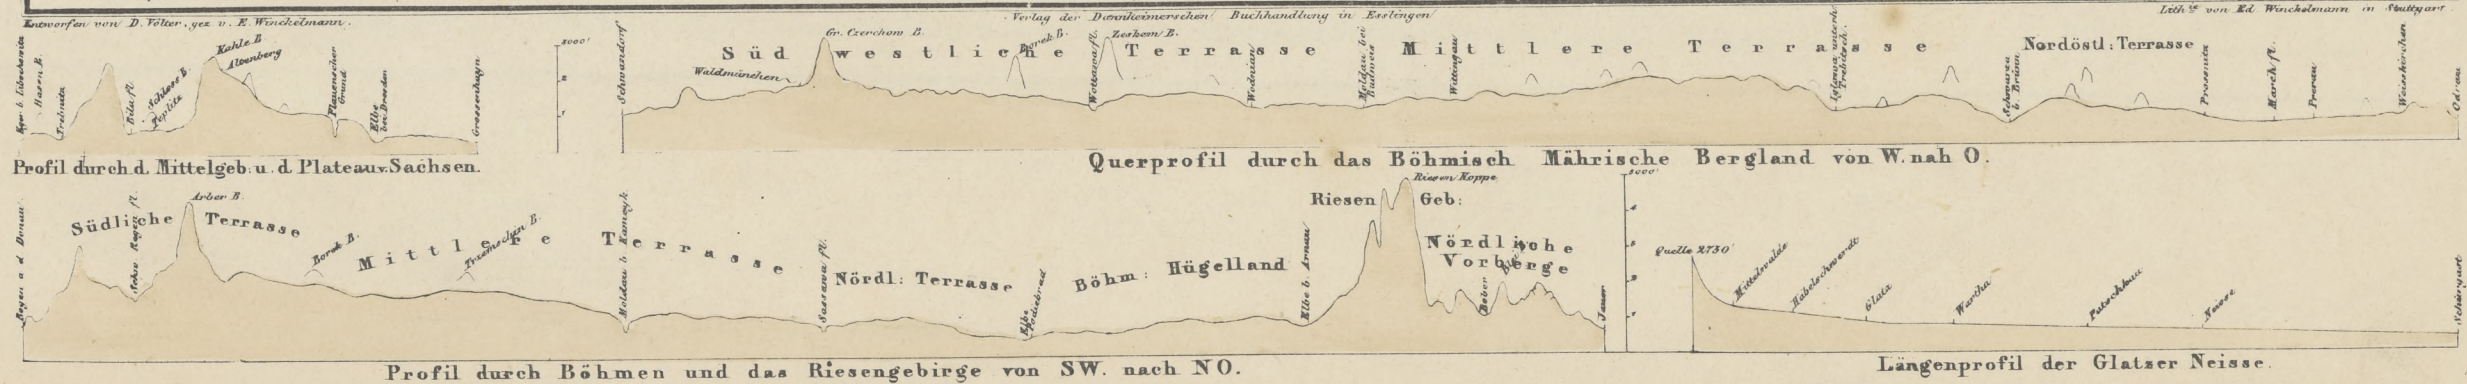 Entworfen von D. Völter, gez v. E. Winckelmann.
Verlag der Dannheimerschen Buchhandlung in Esslingen
Lith^ie von Ed Winckelmann in Stuttgart.
Eger b. Libochowitz
Hasen B.
Trebnitz
Bila fl.
Schloss B.
Teplitz
Kahle B.
Altenberg
Plauenscher
Grund
Elbe
bei Dresden
Grossenhayn
3000'
Profil durch d. Mittelgeb: u. d. Plateau v. Sachsen.
Schwandorf
Südwestliche Terrasse
Waldmünchen
Gr. Czerchow B.
Borek B.
Wottawa fl.
Wodnian
Mittlere Terrasse
Moldau bei
Budweis
Wittingau
Trebitsch
Nordöstl: Terrasse
Schwarza
b. Brünn
Prossnitz
March fl.
Prerau
Weisskirchen
Querprofil durch das Böhmisch Mährische Bergland von W. nah O.
Regen a d Donau
Südliche Terrasse
Schw. Regen fl.
Arber B.
Borek B.
Mittlere Terrasse
Moldau b Kameyk
Sassawa fl.
Nördl: Terrasse
Elbe
Podiebrad
Böhm: Hügelland
Elbe b. Arnau
Riesen Geb:
Riesen Koppe
Nördliche
Vorberge
Bober
Jauer
5000'
Profil durch Böhmen und das Riesengebirge von SW. nach NO.
Quelle 2730'
Mittelwalde
Habelschwerdt
Glatz
Wartha
Patschkau
Neisse
Schurgast
Längenprofil der Glatzer Neisse.